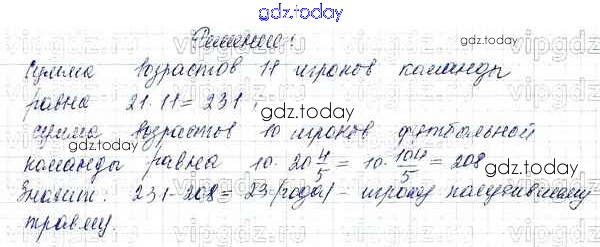 gdz.today
Решение:
Сумма возрастов 11 игроков команды
равна 21·11=231;
gdz.today
сумма возрастов 10 игроков футбольной
команды равна 10·20 4/5 = 10·104/5 = 208
Значит: 231-208= 23(года) - игроку получившему
травму.
gdz.today